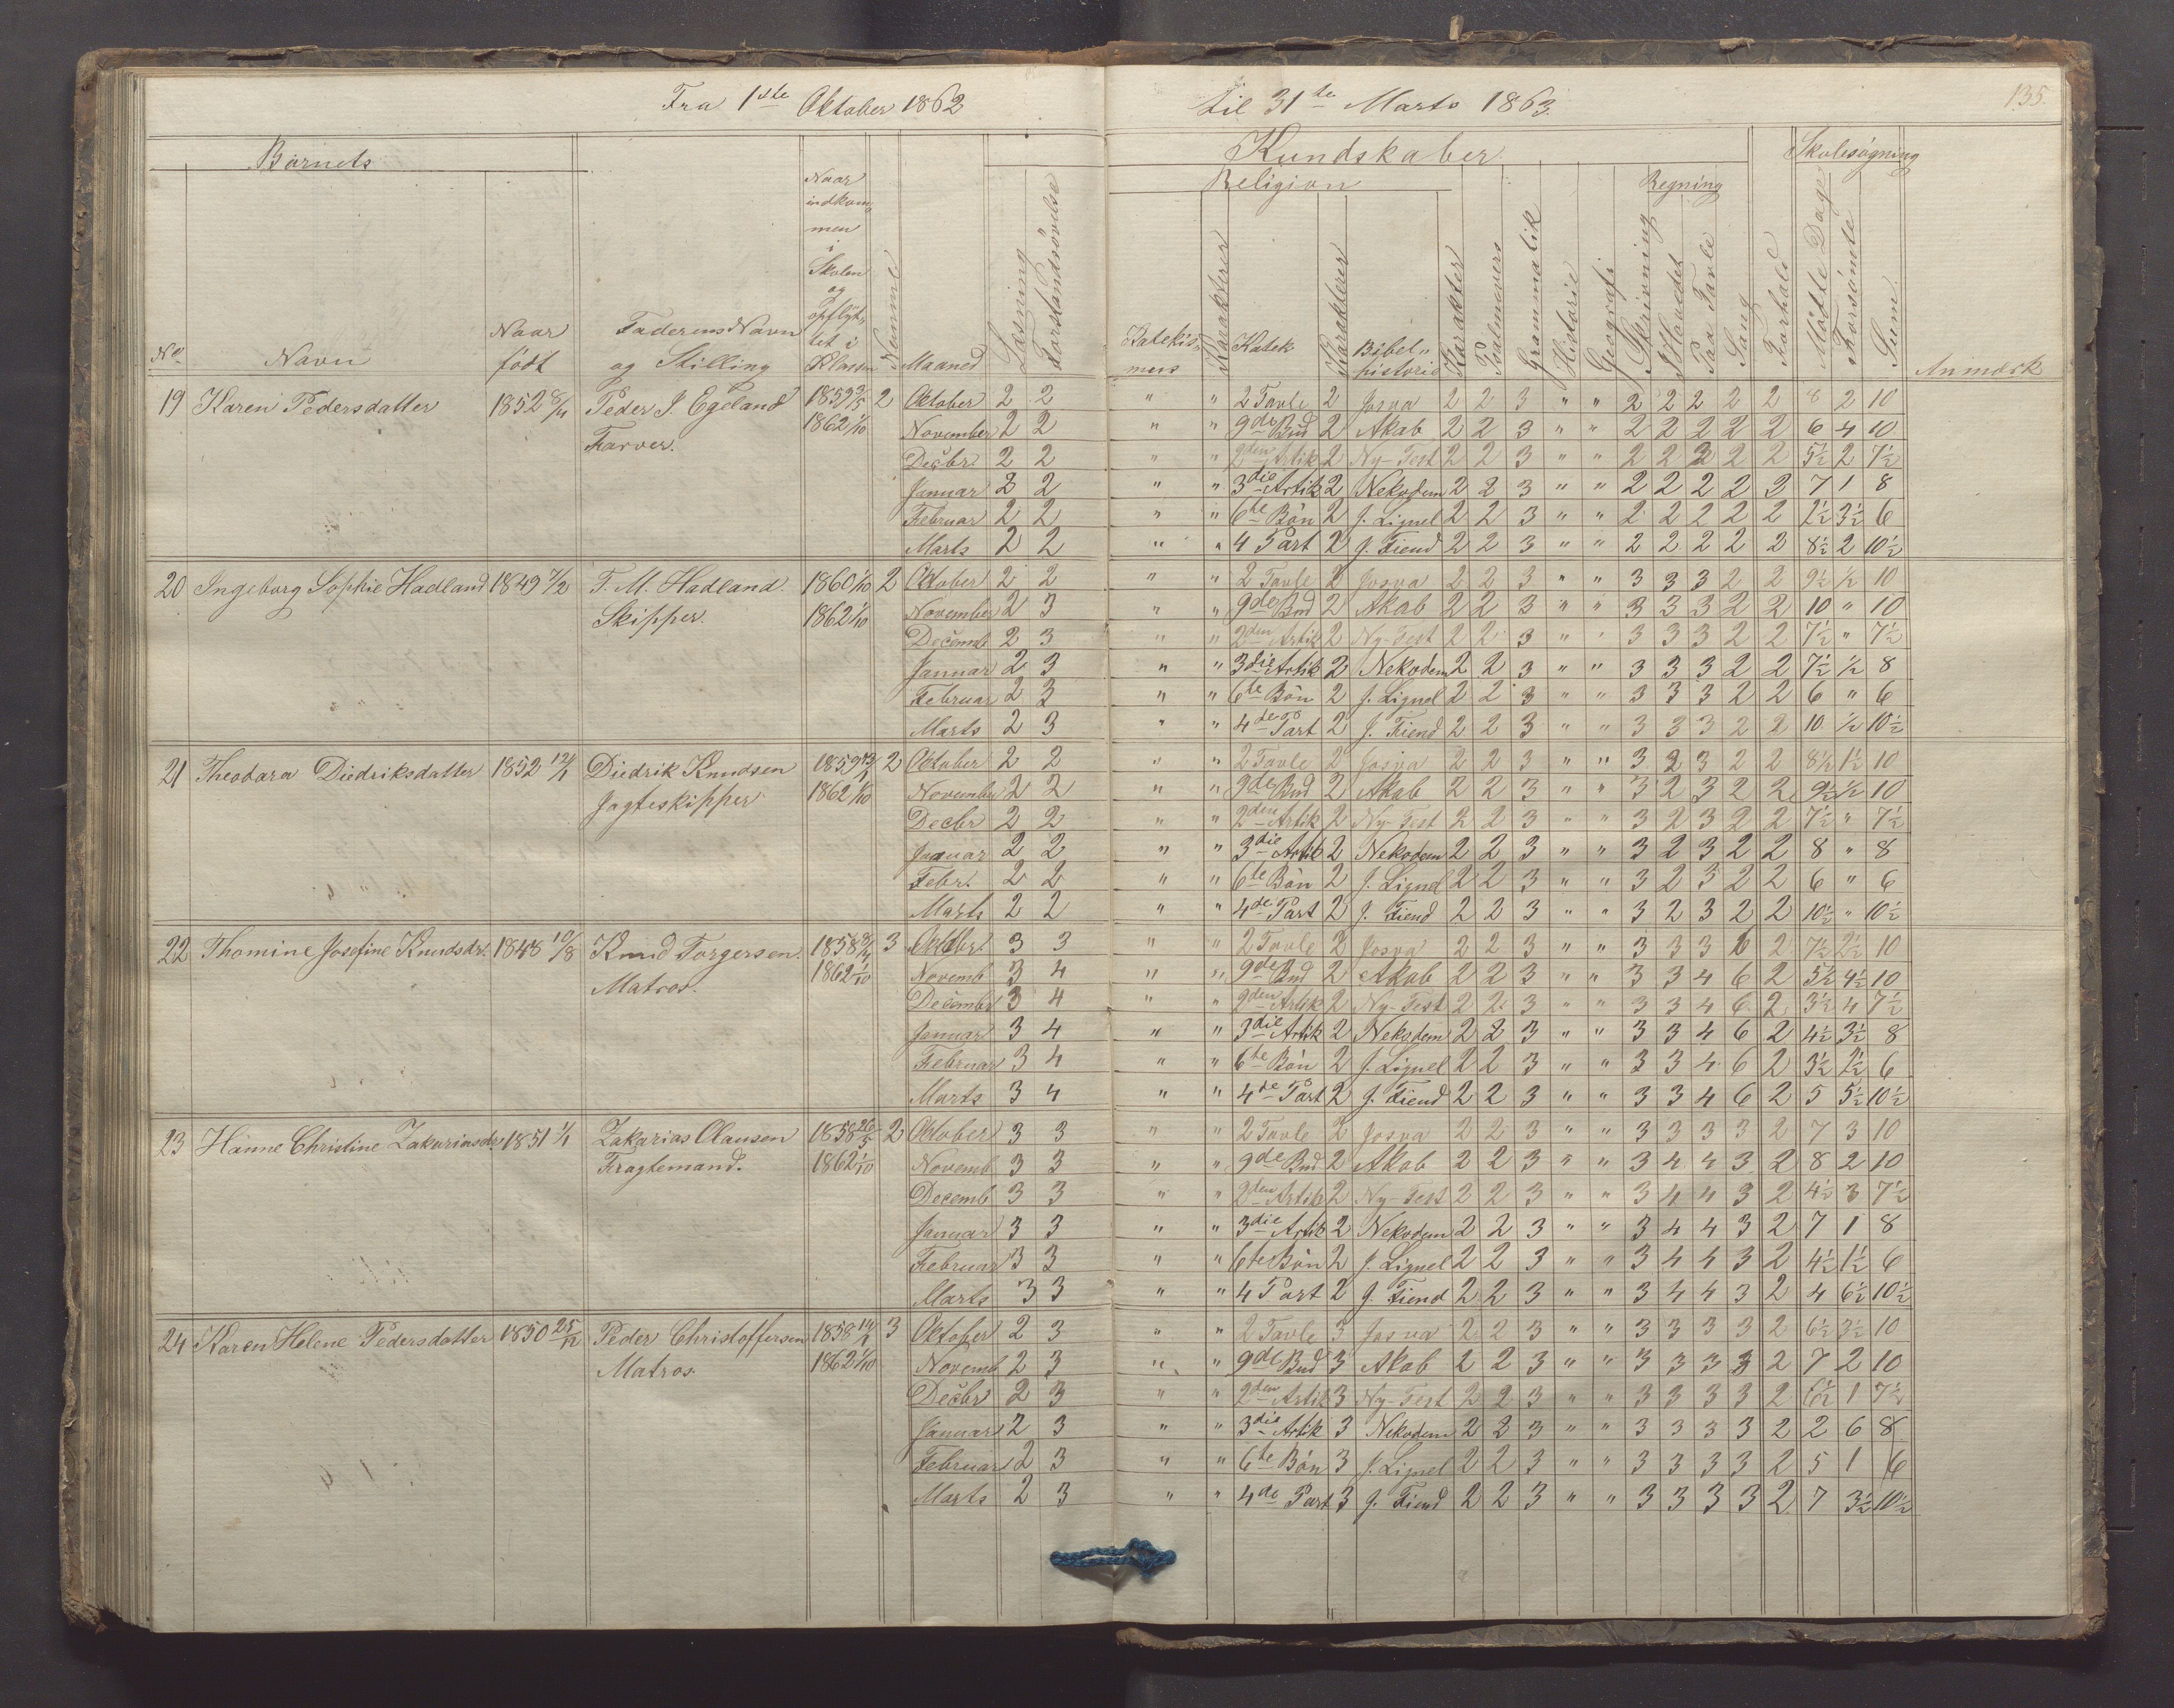 Fra 1ste Oktober 1862 til 31te Marts 1863. 135.
Barnets Kundskaber. Skolesøgning
Religion Regning
No Navn Naar født Faderens Navn og Stilling Naar indkommen i Skolen og opflyttet i Klassen Nummer Maaned Læsning Forstandsøvelse Katekismus Karakterer Katek Karakterer Bibelhistorie Karakter Psalmevers Grammatik Historie Geografi Skrivning I Hovedet Paa Tavle Sang Forhold Mødtte Dage Forsømte Sum. Anmærk
19 Karen Pedersdatter 1852 8/11 Peder J. Egeland 1859 3/5 2 Oktober 2 2 " " 2 Tavle 2 Josva 2 2 3 " " 2 2 2 2 2 8 2 10
Farver. 1862 1/10 November 2 2 " " 9de Bud 2 Akab 2 2 3 " " 2 2 2 2 2 6 4 10
Decbr. 2 2 " " 2den Artik 2 Ny-Test 2 2 3 " " 2 2 2 2 2 5½ 2 7½
Januar 2 2 " " 3die Artik 2 Nekodem 2 2 3 " " 2 2 2 2 2 7 1 8
Februar 2 2 " " 6te Bön 2 J. Lignel 2 2 3 " " 2 2 2 2 2 2½ 3½ 6
Marts 2 2 " " 4 Part 2 J. Fiend 2 2 3 " " 2 2 2 2 2 8½ 2 10½
20 Ingeborg Sophie Hadland 1849 7/2 T. M. Hadland. 1860 1/10 2 Oktober 2 2 " " 2 Tavle 2 Josva 2 2 3 " " 3 3 3 2 2 9½ ½ 10
Skipper. 1862 1/10 November 2 3 " " 9de Bud 2 Akab 2 2 3 " " 3 3 3 2 2 10 " 10
Decemb 2 3 " " 2den Artik 2 Ny-Test 2 2 3 " " 3 3 3 2 2 7½ " 7½
Januar 2 3 " " 3die Artik 2 Nekodem 2 2 3 " " 3 3 3 2 2 7½ ½ 8
Februar 2 3 " " 6te Bön 2 J. Lignel 2 2 3 " " 3 3 3 2 2 6 " 6
Marts 2 3 " " 4de Part 2 J. Fiend 2 2 3 " " 3 3 3 2 2 10 ½ 10½
21 Theodora Diedriksdatter 1852 12/1 Diedrik Knudsen 1859 2 Oktober 2 2 " " 2 Tavle 2 Josva 2 2 3 " " 3 2 3 2 2 8½ 1½ 10
Jagteskipper 1862 1/10 November 2 2 " " 9de Bud 2 Akab 2 2 3 " " 3 2 3 2 2 9½ ½ 10
Decbr 2 2 " " 2den Artik 2 Ny-Test 2 2 3 " " 3 2 3 2 2 7½ " 7½
Januar 2 2 " " 3die Artik 2 Nekodem 2 2 3 " " 3 2 3 2 2 8 " 8
Febr. 2 2 " " 6te Bön 2 J. Lignel 2 2 3 " " 3 2 3 2 2 6 " 6
Marts 2 2 " " 4de Part 2 J. Fiend 2 2 3 " " 3 2 3 2 2 10½ " 10½
22 Thomine Josefine Knudsdr. 1848 10/8 Knud Torgersen. 1858 3 Oktobr 3 3 " " 2 Tavle 2 Josva 2 2 3 " " 3 3 3 6 2 7½ 2½ 10
Matros. 1862 1/10 Novemb 3 4 " " 9de Bud 2 Akab 2 2 3 " " 3 3 4 6 2 5½ 4½ 10
Decembr 3 4 " " 2den Artik 2 Ny-Test 2 2 3 " " 3 3 4 6 2 3½ 4 7½
Januar 3 4 " " 3die Artik 2 Nekodem 2 2 3 " " 3 3 4 6 2 4½ 3½ 8
Februar 3 4 " " 6te Bön 2 J. Lignel 2 2 3 " " 3 3 4 6 2 3½ 2½ 6
Marts 3 4 " " 4de Part 2 J. Fiend 2 2 3 " " 3 3 4 6 2 5 5½ 10½
23 Hanne Christine Zakariasdr. 1851 1/1 Zakarias Olausen 1858 26/5 2 Oktober 3 3 " " 2 Tavle 2 Josva 2 2 3 " " 3 3 3 3 2 7 3 10
Fragtemand. 1862 1/10 Novemb 3 3 " " 9de Bud 2 Akab 2 2 3 " " 3 4 4 3 2 8 2 10
Decemb 3 3 " " 2den Artik 2 Ny-Test 2 2 3 " " 3 4 4 3 2 4½ 3 7½
Januar 3 3 " " 3die Artik 2 Nekodem 2 2 3 " " 3 4 4 3 2 7 1 8
Februar 3 3 " " 6te Bön 2 J. Lignel 2 2 3 " " 3 4 4 3 2 4½ 1½ 6
Marts 3 3 " " 4 Part 2 J. Fiend 2 2 3 " " 3 4 4 3 2 4 6½ 10½
24 Karen Helene Pedersdatter 1850 25/12 Peder Christoffersen 1858 3 Oktober 2 3 " " 2 Tavle 3 Josva 2 2 3 " " 3 3 3 3 2 6½ 3½ 10
Matros. 1862 1/10 Novemb 2 3 " " 9de Bud 3 Akab 2 2 3 " " 3 3 3 3 2 7 2 10
Decbr 2 3 " " 2den Artik 3 Ny-Test 2 2 3 " " 3 3 3 3 2 6½ 1 7½
Januar 2 3 " " 3die Artik 3 Nekodem 2 2 3 " " 3 3 3 3 2 2 6 8
Februar 2 3 " " 6te Bön 3 J. Lignel 2 2 3 " " 3 3 3 3 2 5 1 6
Marts 2 3 " " 4de Part 3 J. Fiend 2 2 3 " " 3 3 3 3 2 7 3½ 10½